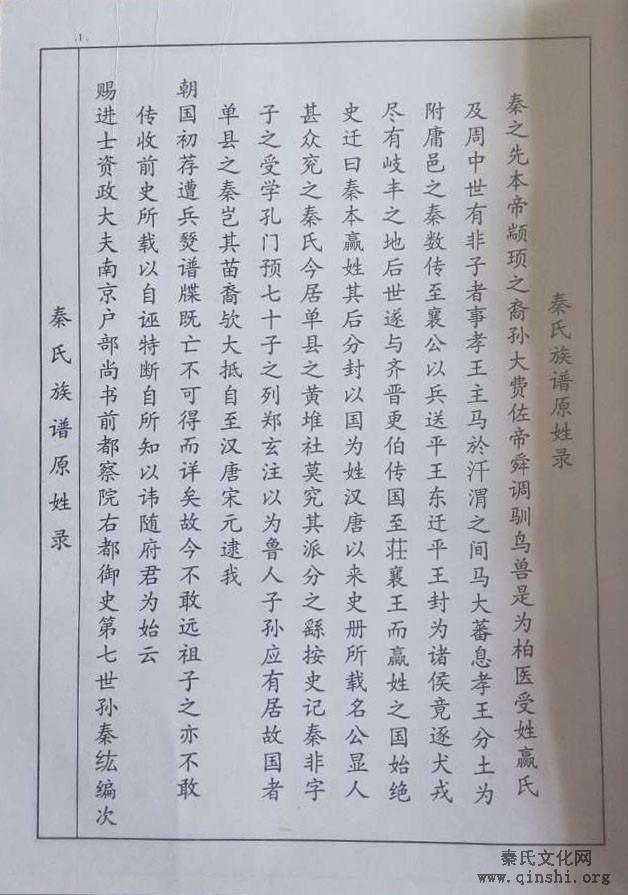 .1.
秦氏族谱原姓录
秦之先本帝颛顼之裔孙大费佐帝舜调驯鸟兽是为柏医受姓嬴氏
及周中世有非子者事孝王主马於汧渭之间马大蕃息孝王分土为
附庸邑之秦数传至襄公以兵送平王东迁平王封为诸侯竟逐犬戎
尽有岐丰之地后世遂与齐晋更伯传国至荘襄王而嬴姓之国始绝
史迁曰秦本嬴姓其后分封以国为姓汉唐以来史册所载名公显人
甚众兖之秦氏今居单县之黄堆社莫究其派分之繇按史记秦非字
子之受学孔门预七十子之列郑玄注以为鲁人子孙应有居故国者
单县之秦岂其苗裔欤大抵自至汉唐宋元逮我
朝国初荐遭兵燹谱牒既亡不可得而详矣故今不敢远祖子之亦不敢
传收前史所载以自诬特断自所知以讳随府君为始云
赐进士资政大夫南京户部尚书前都察院右都御史第七世孙秦纮编次
秦氏族谱原姓录
秦氏文化网
www.qinshi.org